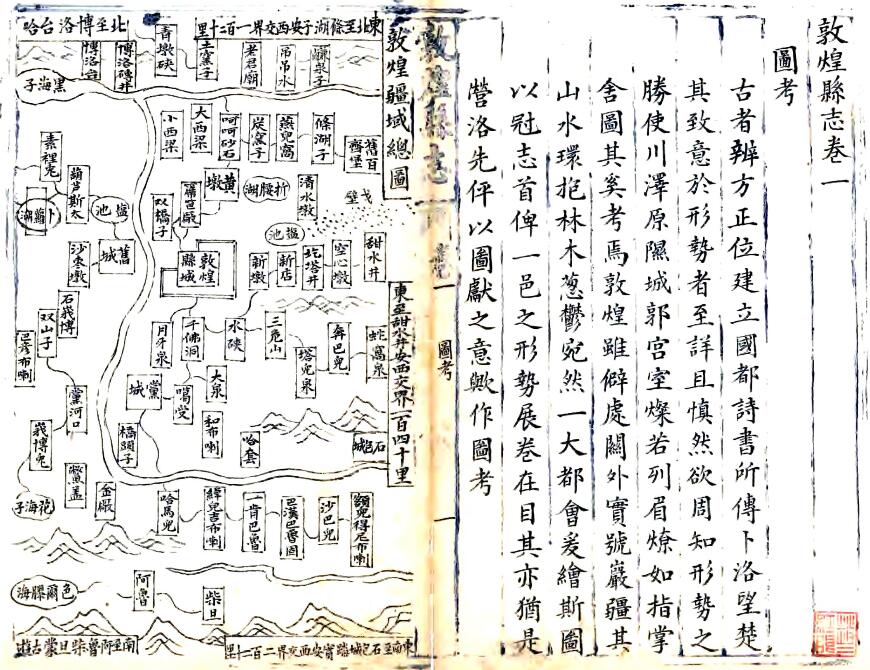 敦煌縣志卷一
圖考
古者辨方正位建立國都詩書所傳卜洛望楚
其致意於形勢者至詳且慎然欲周知形勢之
勝使川澤原隰城郭宮室燦若列眉燎如指掌
舍圖其奚考焉敦煌雖僻處關外實號巖疆其
山水環抱林木葱鬱宛然一大都會爰繪斯圖
以冠志首俾一邑之形勢展卷在目其亦猶是
營洛先伻以圖獻之意歟作圖考
敦煌縣志
圖考
一
敦煌疆域總圖
東北至條湖子安西交界一百二十里
北至博洛台哈
東至甜水井安西交界一百四十里
東南至石包城踏實安西交界二百二十里
南至阿魯柴旦蒙古遊
鹹泉子
吊吊水
老君廟
土窯子
青墩硤
博洛磚井
博洛台
黑海子
舊百齊堡
條湖子
燕兒窩
炭窑子
呵呵砂石
大西梁
小西梁
素裡兔
葫芦斯太
卜羅湖
鹽池
舊城
沙棗墩
戈壁
清水墩
折腰湖
黃墩
双橋子
鹽池
甜水井
空心墩
圪塔井
新店
新墩
敦煌縣城
石我博
双山子
巴彥布喇
蛇窩泉
奔巴兔
塔兒泉
三危山
水硤
千佛洞
月牙泉
大泉
噶党
黨城
黨河口
石包城
哈套
和布喇
橋頭子
我博兔
鰲盖
花海子
金厰
額兒得尼布喇
沙巴兔
巴漢巴魯圖
一肯巴魯
緯兒吉布喇
哈馬兔
柴旦
阿魯
色爾騰海